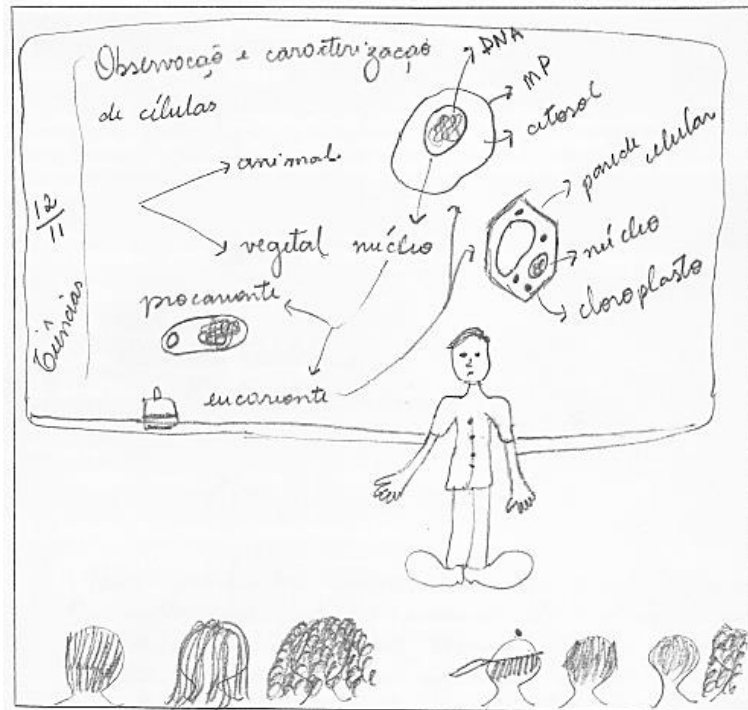 Observação e caracterização
de células
animal
vegetal
núcleo
procarionte
eucarionte
DNA
MP
citosol
parede
celular
núcleo
cloroplasto
12/11
Ciências